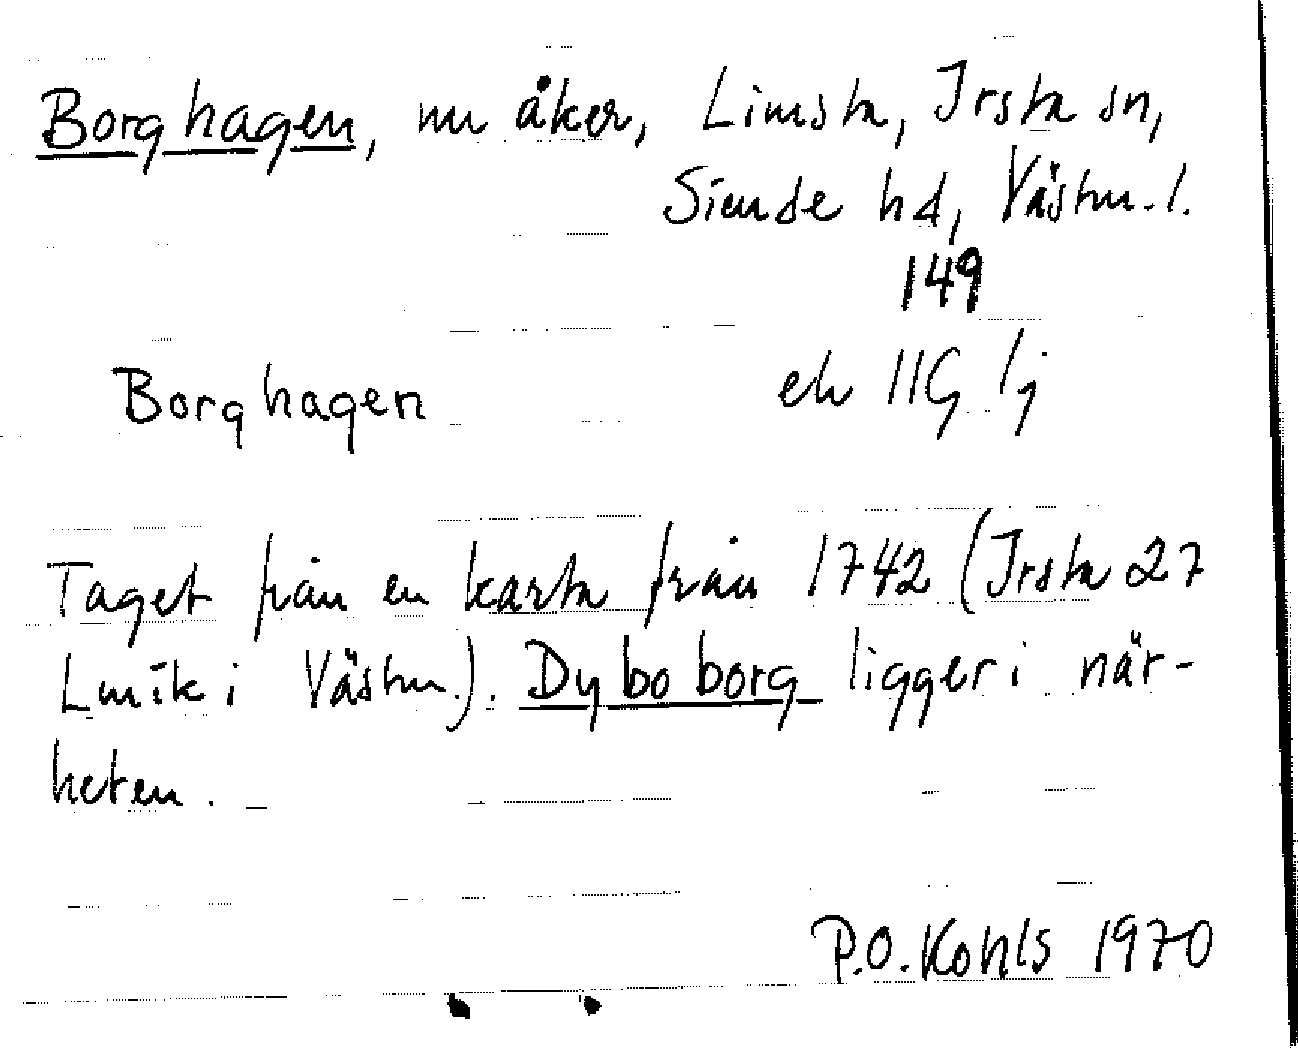 Borghagen, nu åker, Limsta, Irsta sn,
Siende hd, Västm.l.
149
Borghagen ek 11G 1j
Taget från en karta från 1742 (Irsta 27
Lmïk i Västm.). Dyboborg ligger i när-
heten.
P.O. Kohls 1970